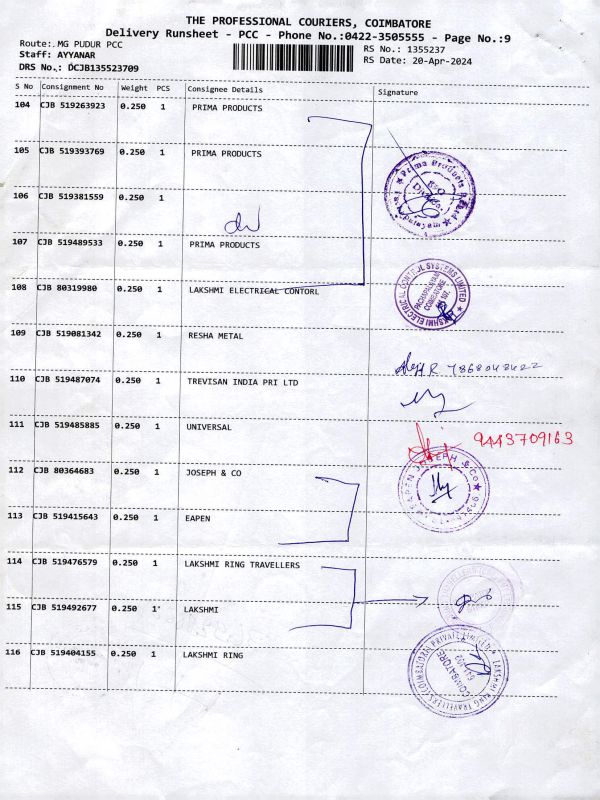 THE PROFESSIONAL COURIERS, COIMBATORE
Delivery Runsheet - PCC - Phone No.:0422-3505555 - Page No.:9
Route:. MG PUDUR PCC
Staff: AYYANAR
DRS No.: DCJB135523709
RS No.: 1355237
RS Date: 20-Apr-2024
S No Consignment No Weight PCS Consignee Details Signature
104 CJB 519263923 0.250 1 PRIMA PRODUCTS
105 CJB 519393769 0.250 1 PRIMA PRODUCTS
106 CJB 519381559 0.250 1
107 CJB 519489533 0.250 1 PRIMA PRODUCTS
108 CJB 80319980 0.250 1 LAKSHMI ELECTRICAL CONTORL
109 CJB 519081342 0.250 1 RESHA METAL
110 CJB 519487074 0.250 1 TREVISAN INDIA PRI LTD
111 CJB 519485885 0.250 1 UNIVERSAL
9443709163
112 CJB 80364683 0.250 1 JOSEPH & CO
113 CJB 519415643 0.250 1 EAPEN
114 CJB 519476579 0.250 1 LAKSHMI RING TRAVELLERS
115 CJB 519492677 0.250 1 LAKSHMI
116 CJB 519404155 0.250 1 LAKSHMI RING
Prima Products
LAKSHMI ELECTRICAL CONTROL SYSTEMS LIMITED
COIMBATORE
EAPEN JOSEPH & CO
LAKSHMI RING TRAVELLERS (COIMBATORE) PRIVATE LIMITED
COIMBATORE